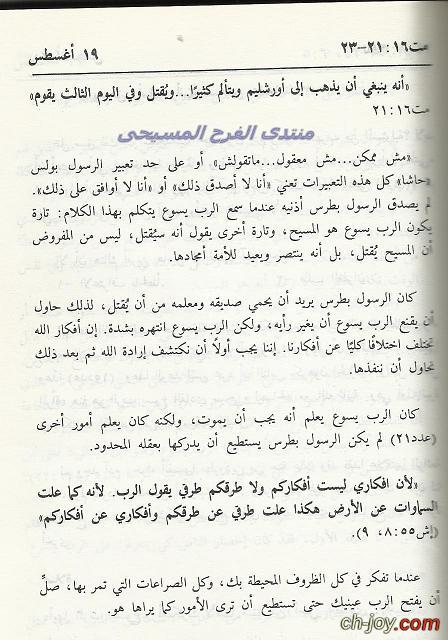 مت١٦: ٢١-٢٣
١٩ أغسطس
«أنه ينبغي أن يذهب إلى أورشليم ويتألم كثيرًا...ويُقتل وفي اليوم الثالث يقوم»
مت١٦: ٢١
منتدى الفرح المسيحى
«مش ممكن...مش معقول...ماتقولش» أو على حد تعبير الرسول بولس
«حاشا» كل هذه التعبيرات تعني «أنا لا أصدق ذلك» أو «أنا لا أوافق على ذلك».
لم يصدق الرسول بطرس أذنيه عندما سمع الرب يسوع يتكلم بهذا الكلام: تارة
يكون الرب يسوع هو المسيح، وتارة أخرى يقول أنه سيُقتل، ليس من المفروض
أن المسيح يُقتل، بل أنه ينتصر ويعيد للأمة أمجادها.
كان الرسول بطرس يريد أن يحمي صديقه ومعلمه من أن يُقتل، لذلك حاول
أن يقنع الرب يسوع أن يغير رأيه، ولكن الرب يسوع انتهره بشدة. إن أفكار الله
تختلف اختلافًا كليًا عن أفكارنا. إننا يجب أولاً أن نكتشف إرادة الله ثم بعد ذلك
نحاول أن ننفذها.
كان الرب يسوع يعلم أنه يجب أن يموت، ولكنه كان يعلم أمور أخرى
(عدد٢١) لم يكن الرسول بطرس يستطيع أن يدركها بعقله المحدود.
«لأن افكاري ليست أفكاركم ولا طرقكم طرقي يقول الرب. لأنه كما علت
السماوات عن الأرض هكذا علت طرقي عن طرقكم وأفكاري عن أفكاركم»
(إش٥٥: ٨، ٩).
عندما تفكر في كل الظروف المحيطة بك، وكل الصراعات التي تمر بها، صلِّ
أن يفتح الرب عينيك حتى تستطيع أن ترى الأمور كما يراها هو.
ch-joy.com